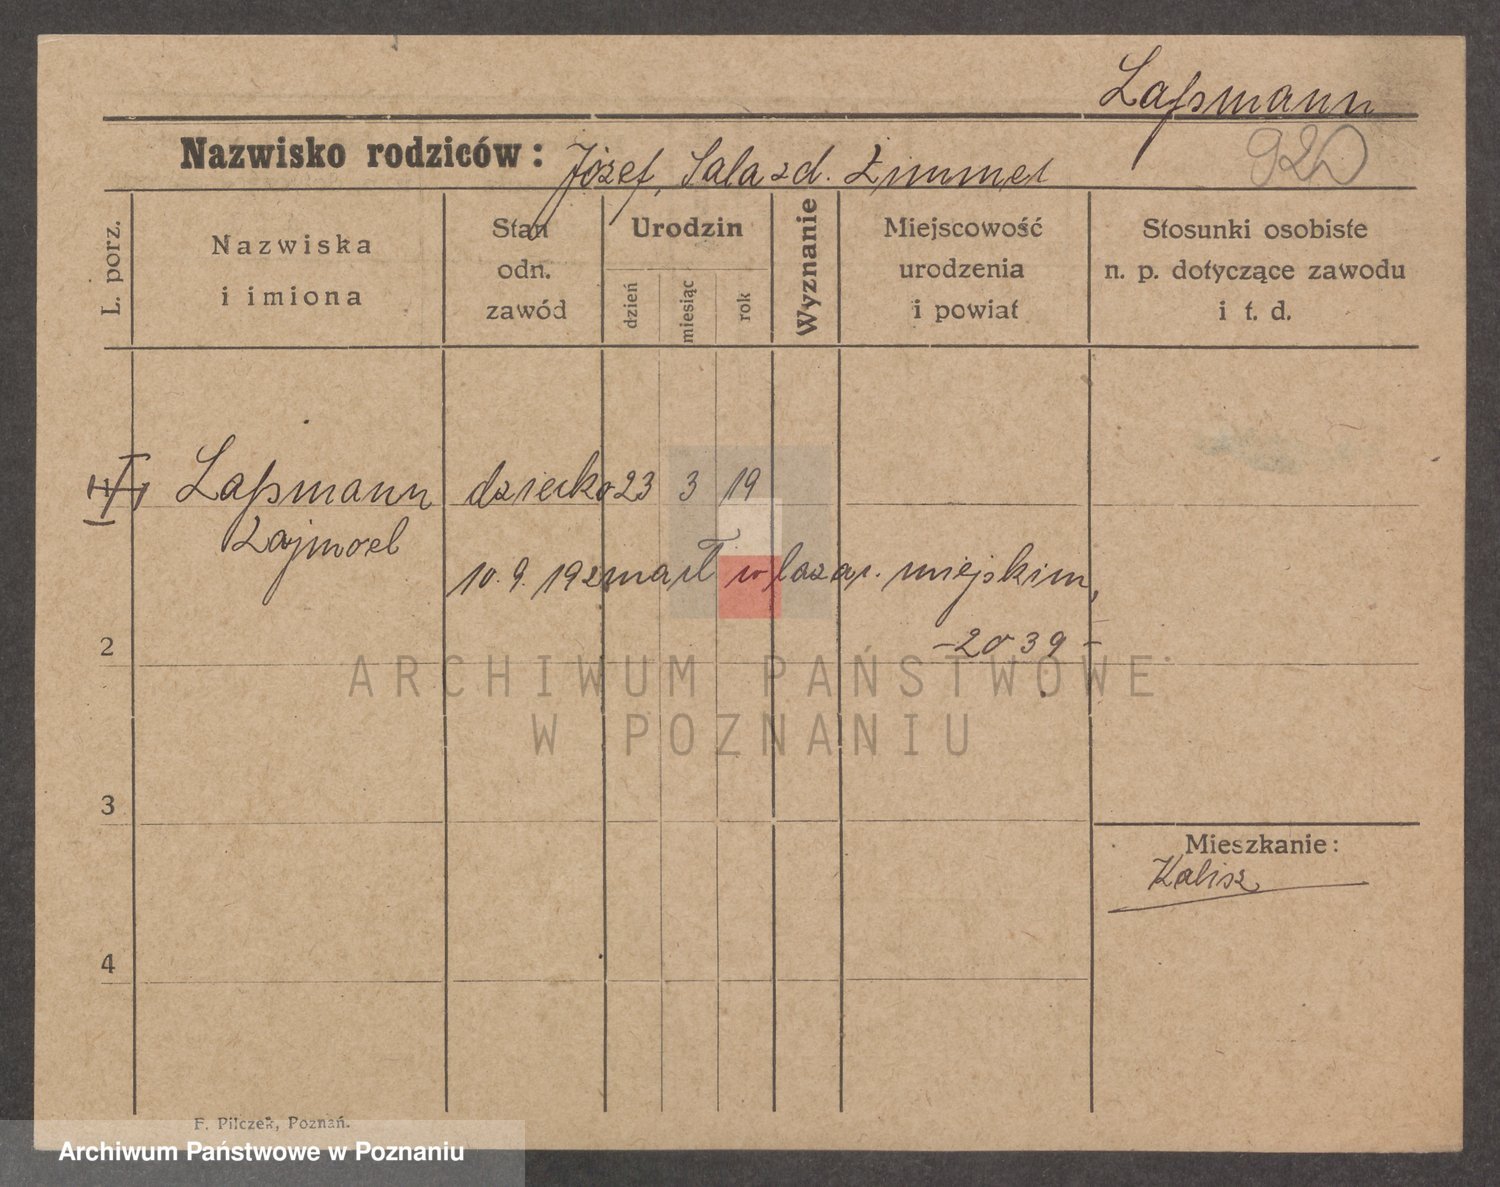 Laßmann
920
Nazwisko rodziców: Józef, Sala zd. Zimmer
L. porz.
Nazwiska
i imiona
Stan
odn.
zawód
Urodzin
dzień
miesiąc
rok
Wyznanie
Miejscowość
urodzenia
i powiat
Stosunki osobiste
n. p. dotyczące zawodu
i t. d.
Laßmann dziecko 23 3 19
Zajmoel
10. 9. 19 zmarł w lazar. miejskim,
2
-2039-
ARCHIWUM PAŃSTWOWE
W POZNANIU
3
Mieszkanie:
Kalisz
4
F. Pilczek, Poznań.
Archiwum Państwowe w Poznaniu